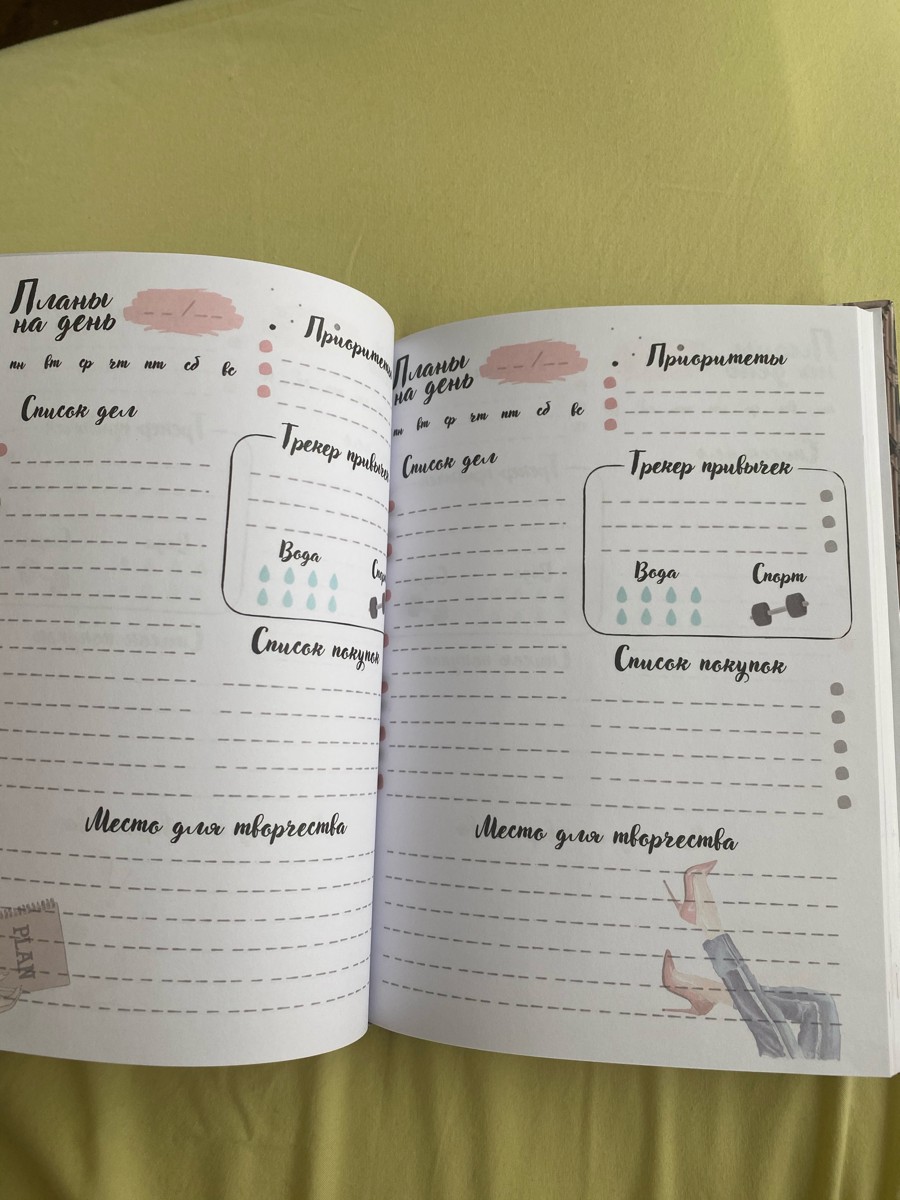 Планы
на день
__/__
пн вт ср чт пт сб вс
Приоритеты
Список дел
Трекер привычек
Вода
Список покупок
Место для творчества
PLAN
Планы
на день
__/__
пн вт ср чт пт сб вс
Приоритеты
Список дел
Трекер привычек
Вода Спорт
Список покупок
Место для творчества